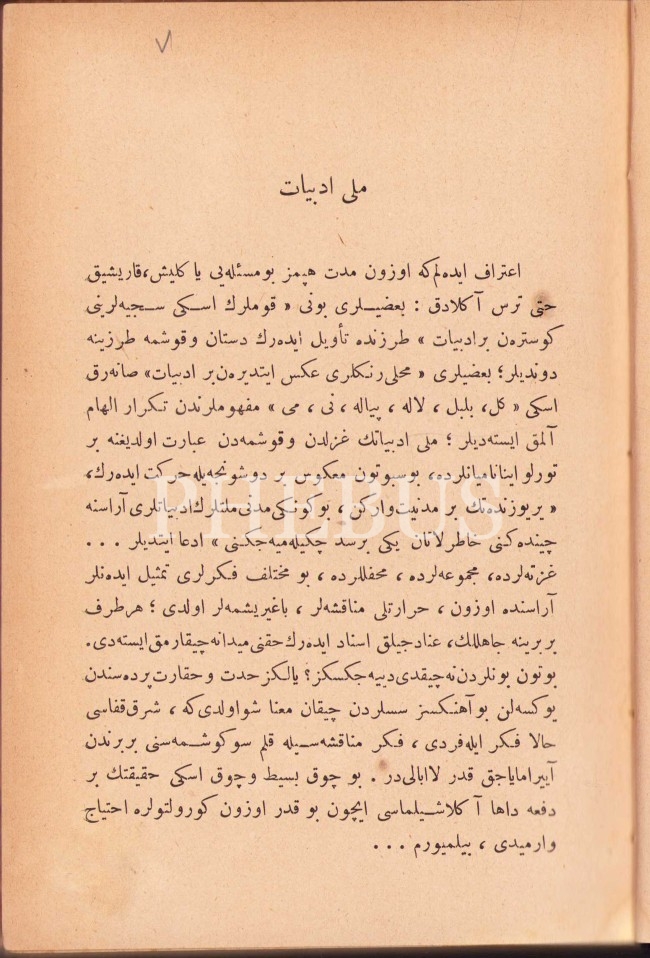 ملی ادبیات
اعتراف ایده‌لم که اوزون مدت هپمز بو مسئله‌یی یا کلیش، قاریشیق
حتی ترس آکلادق : بعضیلری بونی « قوملرك اسکی سجیه‌لرینی
کوسترەن بر ادبیات » طرزنده تأویل ایده‌رك دستان و قوشمه طرزینه
دوندیلر؛ بعضیلری « محلی رنکلری عکس ایتدیرەن بر ادبیات» صانه‌رق
اسکی « کل، بلبل ، لاله ، پیاله ، نی ، می » مفهوملرندن تکرار الهام
آلمق ایسته‌دیلر ؛ ملی ادبیاتك غزلدن و قوشمه‌دن عبارت اولدیغنه بر
تورلو اینانامیانلرده، بوسبوتون معکوس بر دوشونجه‌یله حرکت ایده‌رك،
« یریوزنده‌تك بر مدنیت وارکن ، بوکونکی مدنی ملتلرك ادبیاتلری آراسنه
چینده‌کنی خاطرلاتان یکی بر سد چکیله‌میه‌جکنی » ادعا ایتدیلر . . .
غزته‌لرده، مجموعه‌لرده ، محفللرده ، بو مختلف فکرلری تمثیل ایدەنلر
آراسنده اوزون ، حرارتلی مناقشه‌لر ، باغیریشمه‌لر اولدی ؛ هر طرف
بربرینه جاهللك، عنادجیلق اسناد ایده‌رك حقنی میدانه چیقارمق ایسته‌دی.
بوتون بونلردن نه چیقدی دییه‌جکسکز؟ یالکز حدت و حقارت پرده‌سندن
یوکسه‌لن بو آهنکسز سسلردن چیقان معنا شو اولدی‌که ، شرق قفاسی
حالا فکر ایله فردی ، فکر مناقشه‌سیله قلم سوکوشمه‌سنی بربرندن
آییرامایاجق قدر لاابالی‌در . بو چوق بسیط و چوق اسکی حقیقتك بر
دفعه داها آکلاشیلماسی ایچون بو قدر اوزون کورولتولره احتیاج
وارمیدی ، بیلمیورم . . .
PHEBUS